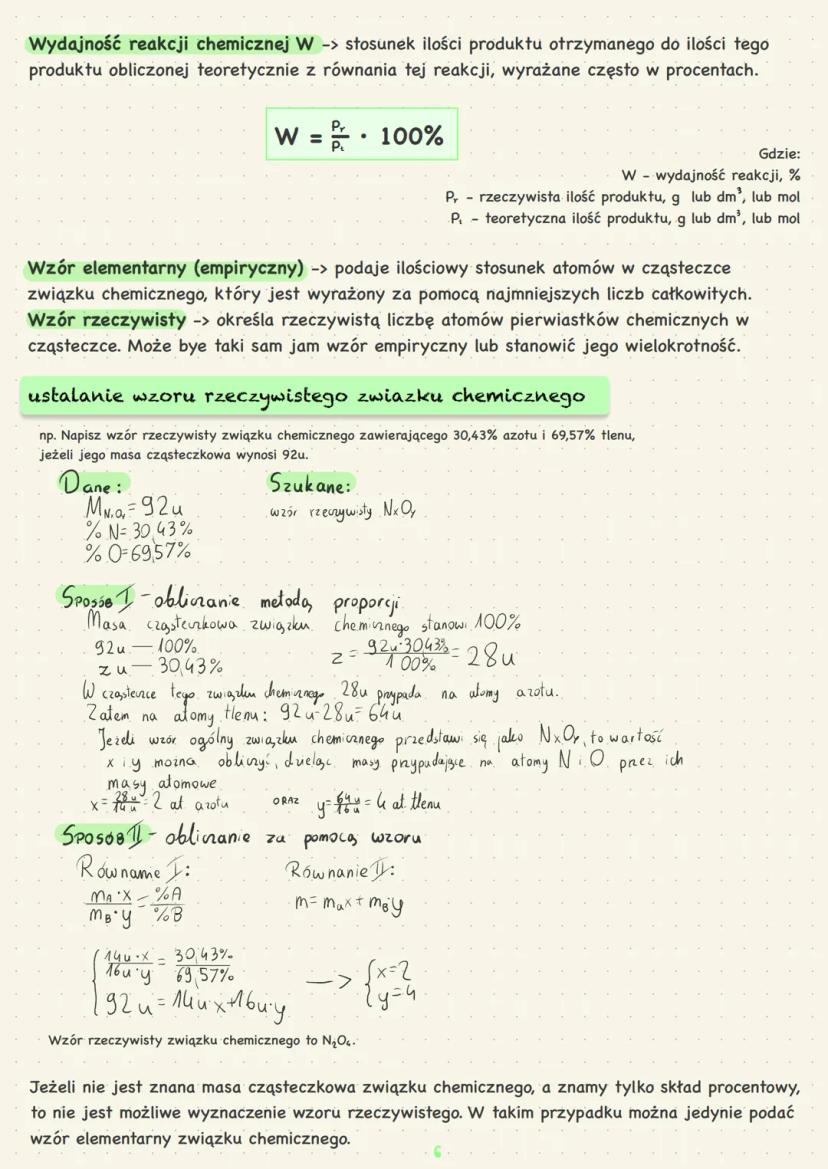 Wydajność reakcji chemicznej W -> stosunek ilości produktu otrzymanego do ilości tego
produktu obliczonej teoretycznie z równania tej reakcji, wyrażane często w procentach.
W = Pᵣ/Pₜ · 100%
Gdzie:
W - wydajność reakcji, %
Pᵣ - rzeczywista ilość produktu, g lub dm³, lub mol
Pₜ - teoretyczna ilość produktu, g lub dm³, lub mol
Wzór elementarny (empiryczny) -> podaje ilościowy stosunek atomów w cząsteczce
związku chemicznego, który jest wyrażony za pomocą najmniejszych liczb całkowitych.
Wzór rzeczywisty -> określa rzeczywistą liczbę atomów pierwiastków chemicznych w
cząsteczce. Może bye taki sam jam wzór empiryczny lub stanowić jego wielokrotność.
ustalanie wzoru rzeczywistego zwiazku chemicznego
np. Napisz wzór rzeczywisty związku chemicznego zawierającego 30,43% azotu i 69,57% tlenu,
jeżeli jego masa cząsteczkowa wynosi 92u.
Dane: Szukane:
M NxOy = 92u wzór rzeczywisty NxOy
% N = 30,43%
% O = 69,57%
Sposób I - obliczanie metodą proporcji
Masa cząsteczkowa związku chemicznego stanowi 100%
92u — 100%
z u — 30,43%
z = 92u·30,43%/100% = 28u
W cząsteczce tego związku chemicznego 28u przypada na atomy azotu.
Zatem na atomy tlenu: 92u-28u=64u
Jeżeli wzór ogólny związku chemicznego przedstawi się jako NxOy, to wartość
x i y można obliczyć, dzieląc masy przypadające na atomy N i O przez ich
masy atomowe
x = 28u/14u = 2 at azotu ORAZ y = 64u/16u = 4 at tlenu
Sposób II - obliczanie za pomocą wzoru
Równanie I: Równanie II:
mA·x/mB·y = %A/%B m = max + mB·y
14u·x/16u·y = 30,43%/69,57%
92u = 14u·x+16u·y
—> { x=2
y=4
Wzór rzeczywisty związku chemicznego to N₂O₄.
Jeżeli nie jest znana masa cząsteczkowa związku chemicznego, a znamy tylko skład procentowy,
to nie jest możliwe wyznaczenie wzoru rzeczywistego. W takim przypadku można jedynie podać
wzór elementarny związku chemicznego.
6